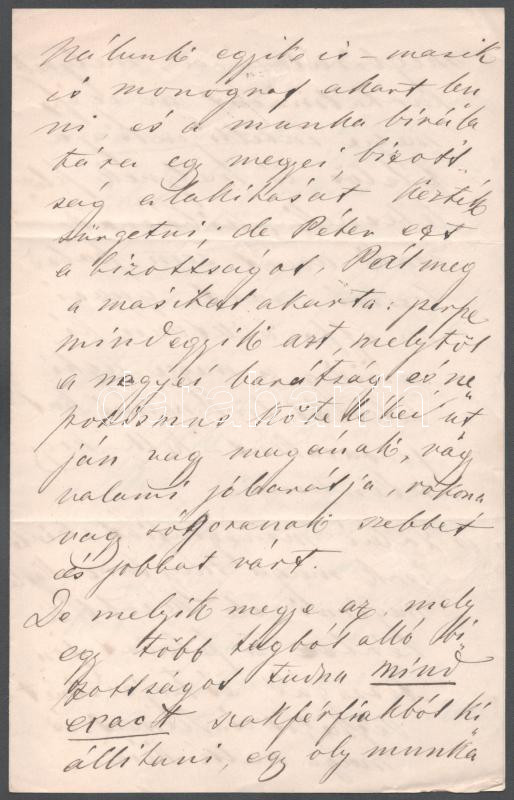 Nálunk egyik is – masik
is monograf akart len
ni és a munka birála
tára egy megyei bizott
ság alakitását kezték
sürgetni; de Péter ezt
a bizottságot, Pál meg
a masikat akarta: persze
mindegyik azt, melytől
a megyei barátság és ne
potismus kötelékei út
ján vagy magának, vagy
valami jóbarátja, rokona
vagy sógorának szebbet
és jobbat várt.
De melyik megye az, mely
egy több tagból álló bi
zottságot tudna mind
exact szakférfiakból ki
állitani, egy oly munka
darabanth